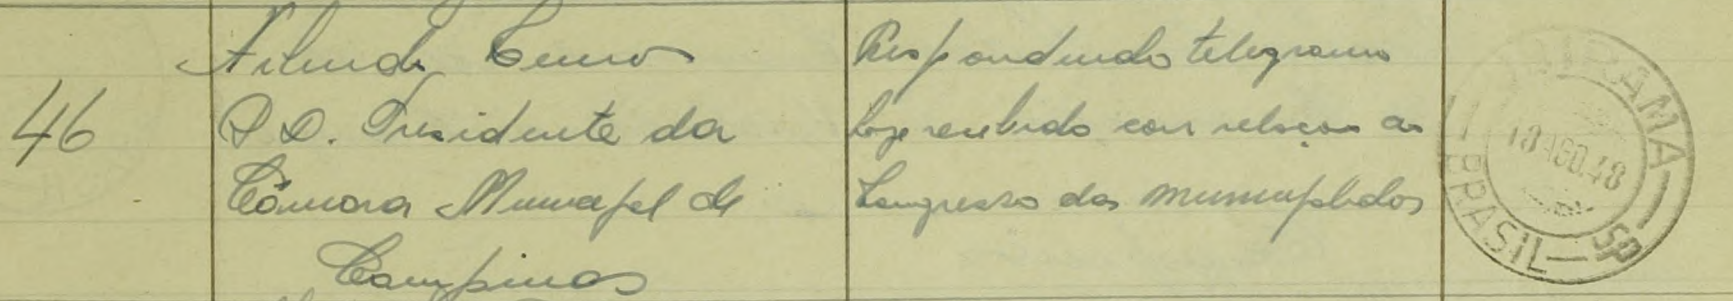 46
Arlindo Lemos
P D. Presidente da
Câmara Municipal de
Campinas
Respondendo telegrama
hoje recebido com relação ao
Congresso das municipalidades
18 AGO.48
BRASIL — SP